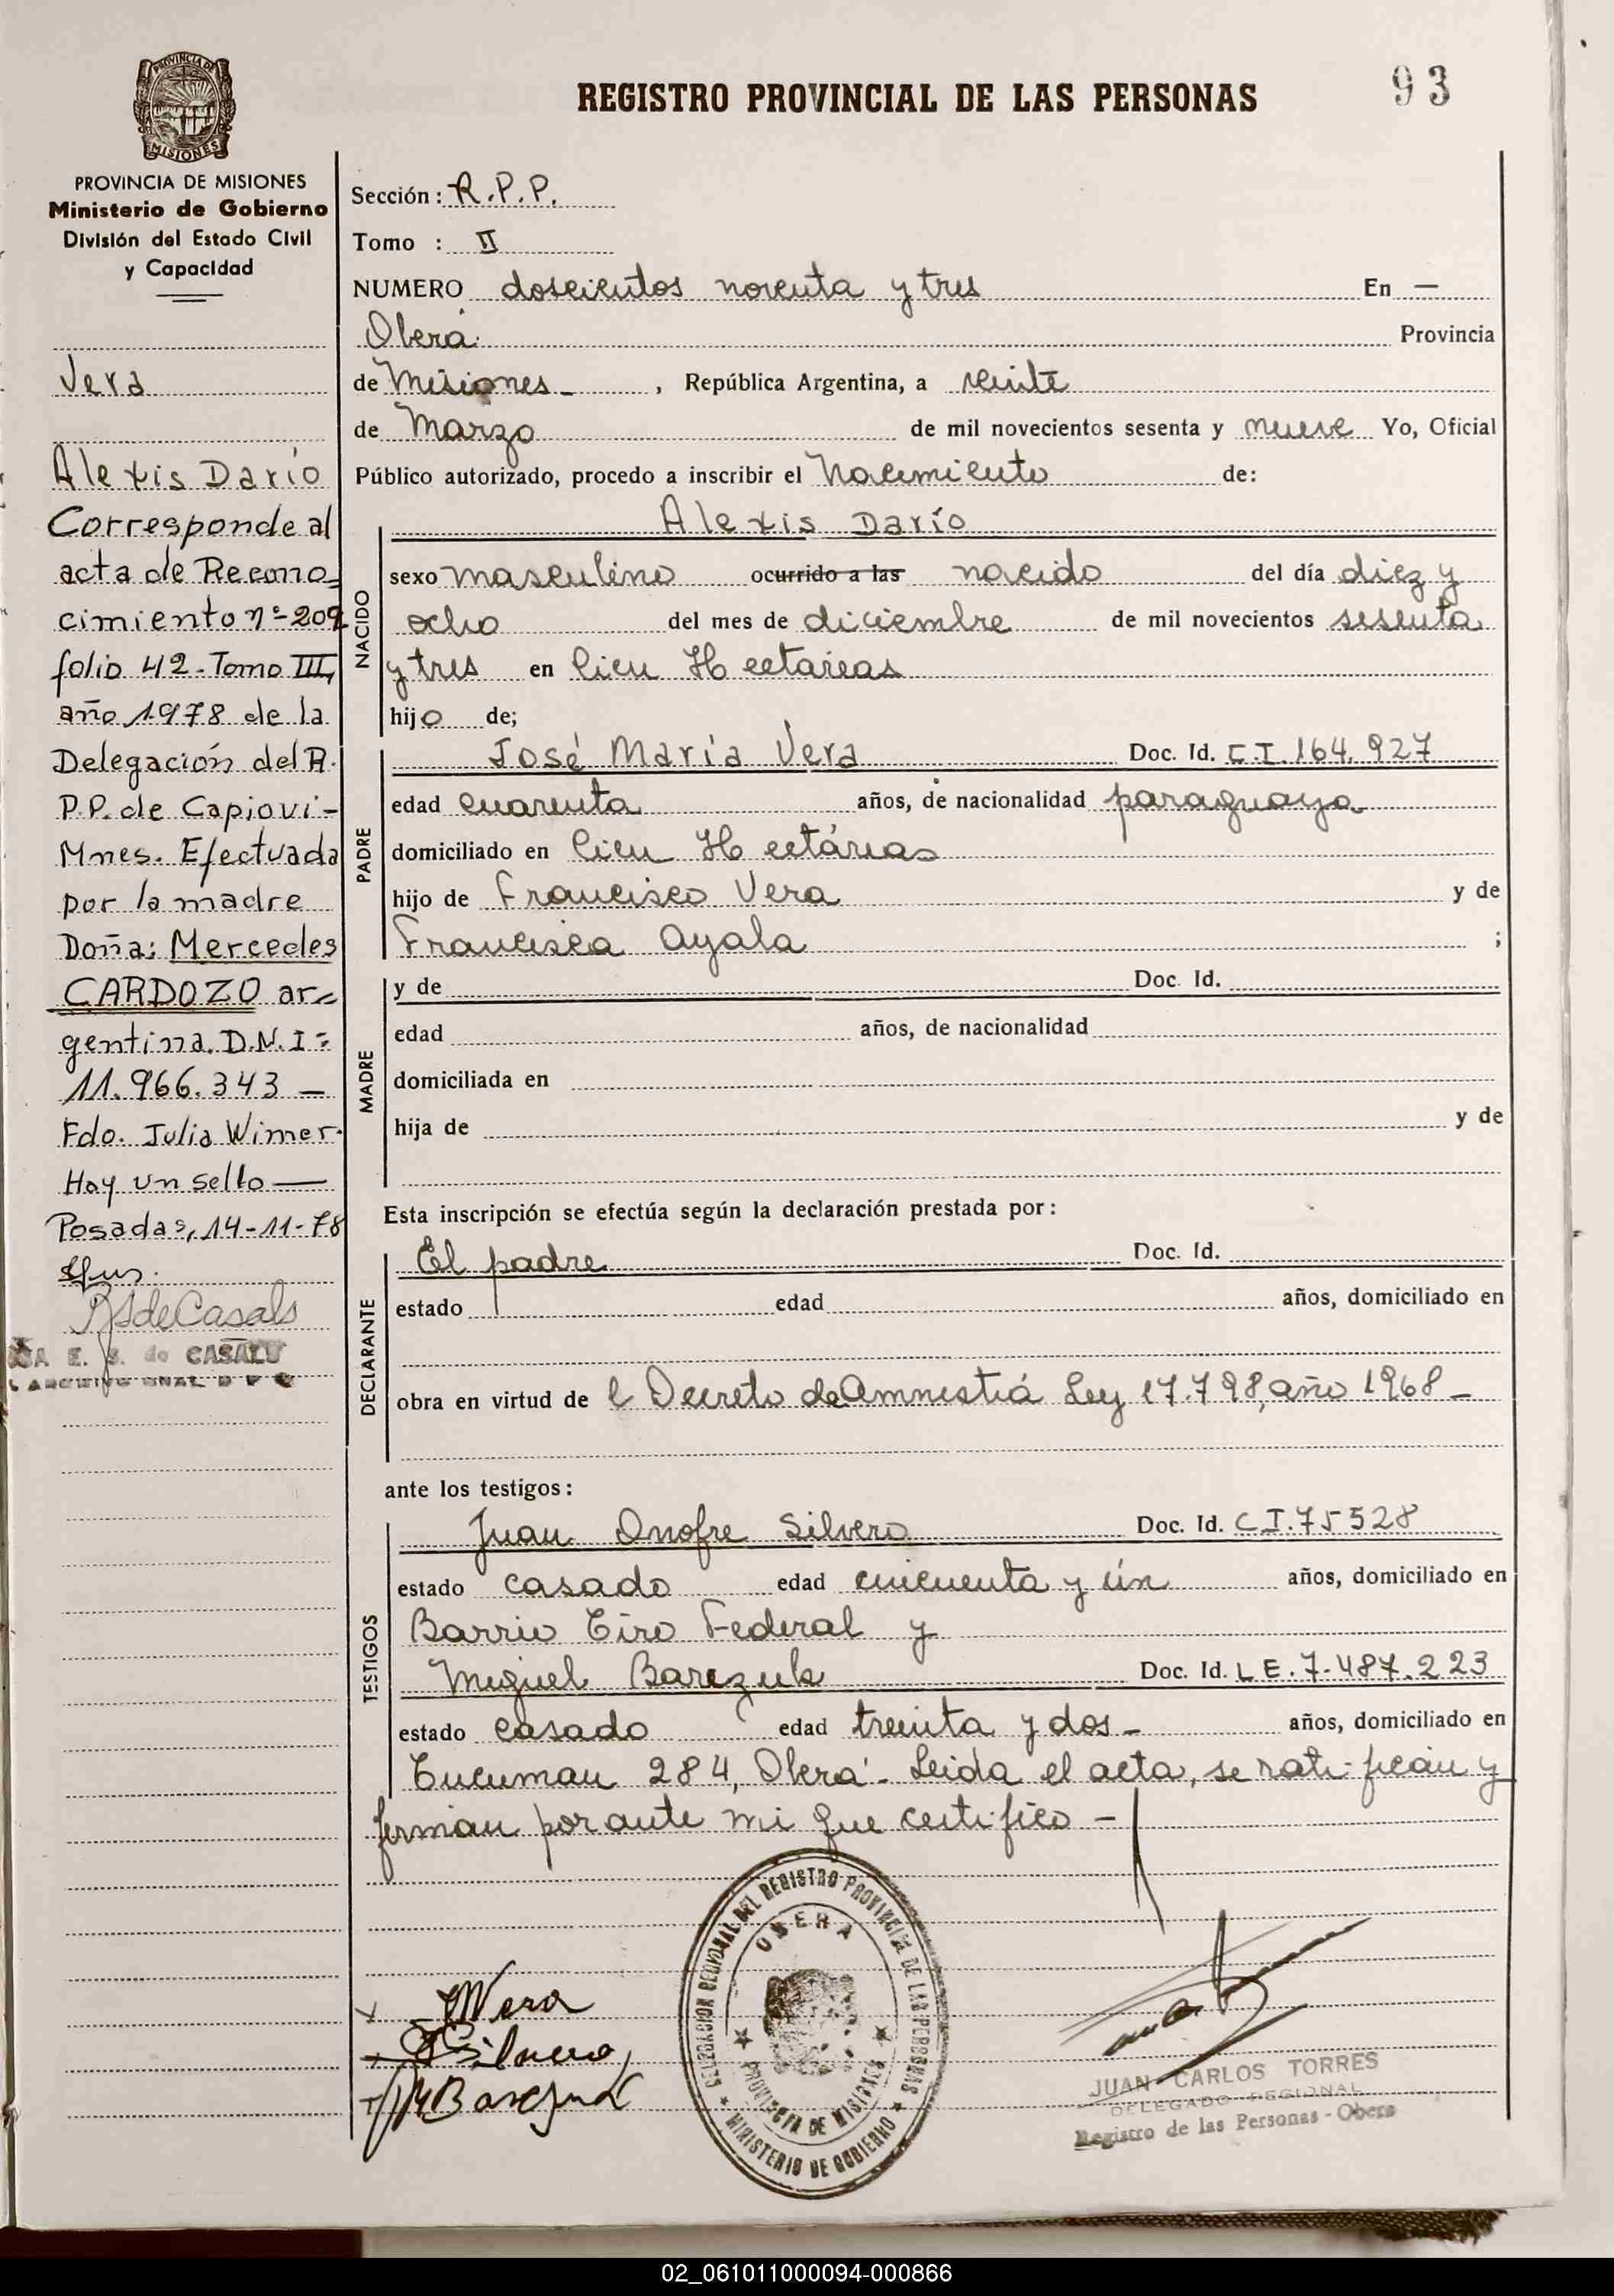 REGISTRO PROVINCIAL DE LAS PERSONAS
93
PROVINCIA DE MISIONES
MISIONES
PROVINCIA DE MISIONES
Ministerio de Gobierno
División del Estado Civil
y Capacidad
Vera
Alexis Darío
Corresponde al
acta de Recono-
cimiento nº-209
folio 42-Tomo III,
año 1978 de la
Delegación del R.
P.P. de Capioví-
Mnes. Efectuada
por la madre
Doña: Mercedes
CARDOZO ar-
gentina. D.N.I=
11.966.343 —
Fdo. Julia Wimer.
Hay un sello —
Posadas, 14-11-78
RSdeCasals
E. S. de CASALS
Sección: R.P.P.
Tomo : II
NUMERO doscientos noventa y tres En —
Oberá Provincia
de Misiones - , República Argentina, a veinte
de Marzo de mil novecientos sesenta y nueve Yo, Oficial
Público autorizado, procedo a inscribir el Nacimiento de:
NACIDO
Alexis Darío
sexo masculino ocurrido a las nacido del día diez y
ocho del mes de diciembre de mil novecientos sesenta
y tres en Cien Hectareas
hijo de;
PADRE
José María Vera Doc. Id. C.I. 164.927
edad cuarenta años, de nacionalidad paraguaya
domiciliado en Cien Hectáreas
hijo de Francisco Vera y de
Francisca Ayala ;
MADRE
y de Doc. Id.
edad años, de nacionalidad
domiciliada en
hija de y de
Esta inscripción se efectúa según la declaración prestada por:
DECLARANTE
El padre Doc. Id.
estado edad años, domiciliado en
obra en virtud de l Decreto de Amnistiá Ley 17.798, año 1968-
ante los testigos:
TESTIGOS
Juan Onofre Silvero Doc. Id. C.I. 75528
estado casado edad cincuenta y ún años, domiciliado en
Barrio Tiro Federal y
Miguel Barczuk Doc. Id. L E. 7.487.223
estado casado edad treinta y dos - años, domiciliado en
Tucuman 284, Oberá - Leida el acta, se ratifican y
firman por ante mi que certifico -
JMVera
Silvero
MBarczuk
DELEGACION REGIONAL DEL REGISTRO PROVINCIAL DE LAS PERSONAS
OBERA
PROVINCIA DE MISIONES
MINISTERIO DE GOBIERNO
JUAN CARLOS TORRES
DELEGADO REGIONAL
Registro de las Personas - Obera
02_061011000094-000866